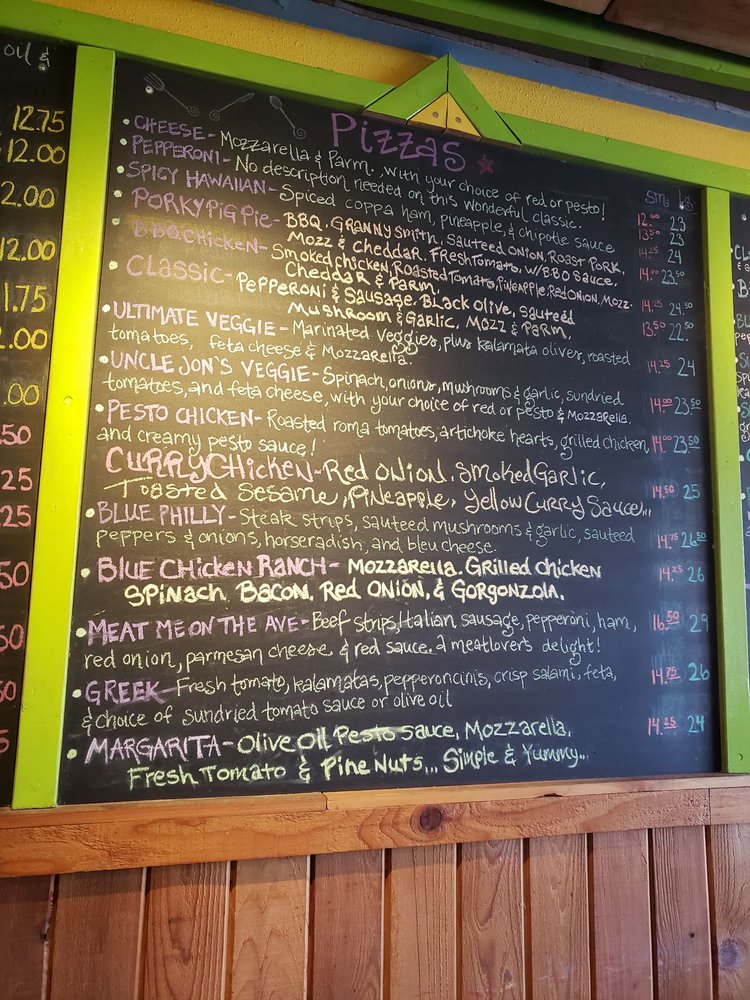 oil &
12.75
12.00
2.00
12.00
1.75
2.00
.00
.50
25
25
50
50
50
5
Pizzas
Sm. Lg.
• CHEESE - Mozzarella & Parm. , with your choice of red or pesto! 12.00 23
PEPPERONI - No description needed on this wonderful classic. 13.50 23
• SPICY HAWAIIAN - Spiced coppa ham, pineapple, & chipotle sauce 14.25 24
PORKY PIG PIE - BBQ. GRANNY SMITH, SAUTEED ONION, ROAST PORK, 14.00 23.50
MOZZ & CHEDDAR. FRESH TOMATO, W/BBQ SAUCE,
• BBQ CHICKEN - Smoked chicken, Roasted Tomato, Pineapple, Red Onion, Mozz. 14.25 24.50
CHEDDAR & PARM.
• CLASSIC - PEPPERONI & SAUSAGE. BLACK OLIVE, SAUTEED 13.50 22.50
MUSHROOM & GARLIC, MOZZ & PARM,
• ULTIMATE VEGGIE - Marinated veggies, plus kalamata olives, roasted 14.25 24
tomatoes, feta cheese & Mozzarella.
• UNCLE JON'S VEGGIE - Spinach, onions, mushrooms & garlic, sundried 14.00 23.50
tomatoes, and feta cheese, with your choice of red or pesto & Mozzarella.
• PESTO CHICKEN - Roasted roma tomatoes, artichoke hearts, grilled chicken, 14.00 23.50
and creamy pesto sauce!
CURRY CHICKEN - Red Onion, Smoked Garlic, 14.50 25
Toasted Sesame, Pineapple, Yellow Curry Sauce...
• BLUE PHILLY - Steak strips, sauteed mushrooms & garlic, sauteed 14.75 26.50
peppers & onions, horseradish, and bleu cheese.
• BLUE CHICKEN RANCH - MOZZARELLA. Grilled chicken 14.25 26
SPINACH, BACON, RED ONION, & GORGONZOLA.
• MEAT ME ON THE AVE - Beef strips, Italian sausage, pepperoni, ham, 16.50 29
red onion, parmesan cheese, & red sauce. a meatlover's delight!
• GREEK - Fresh tomato, kalamatas, pepperoncinis, crisp salami, feta, 14.75 26
& choice of sundried tomato sauce or olive oil
• MARGARITA - Olive Oil Pesto Sauce, Mozzarella, 14.25 24
Fresh Tomato & Pine Nuts... Simple & Yummy..